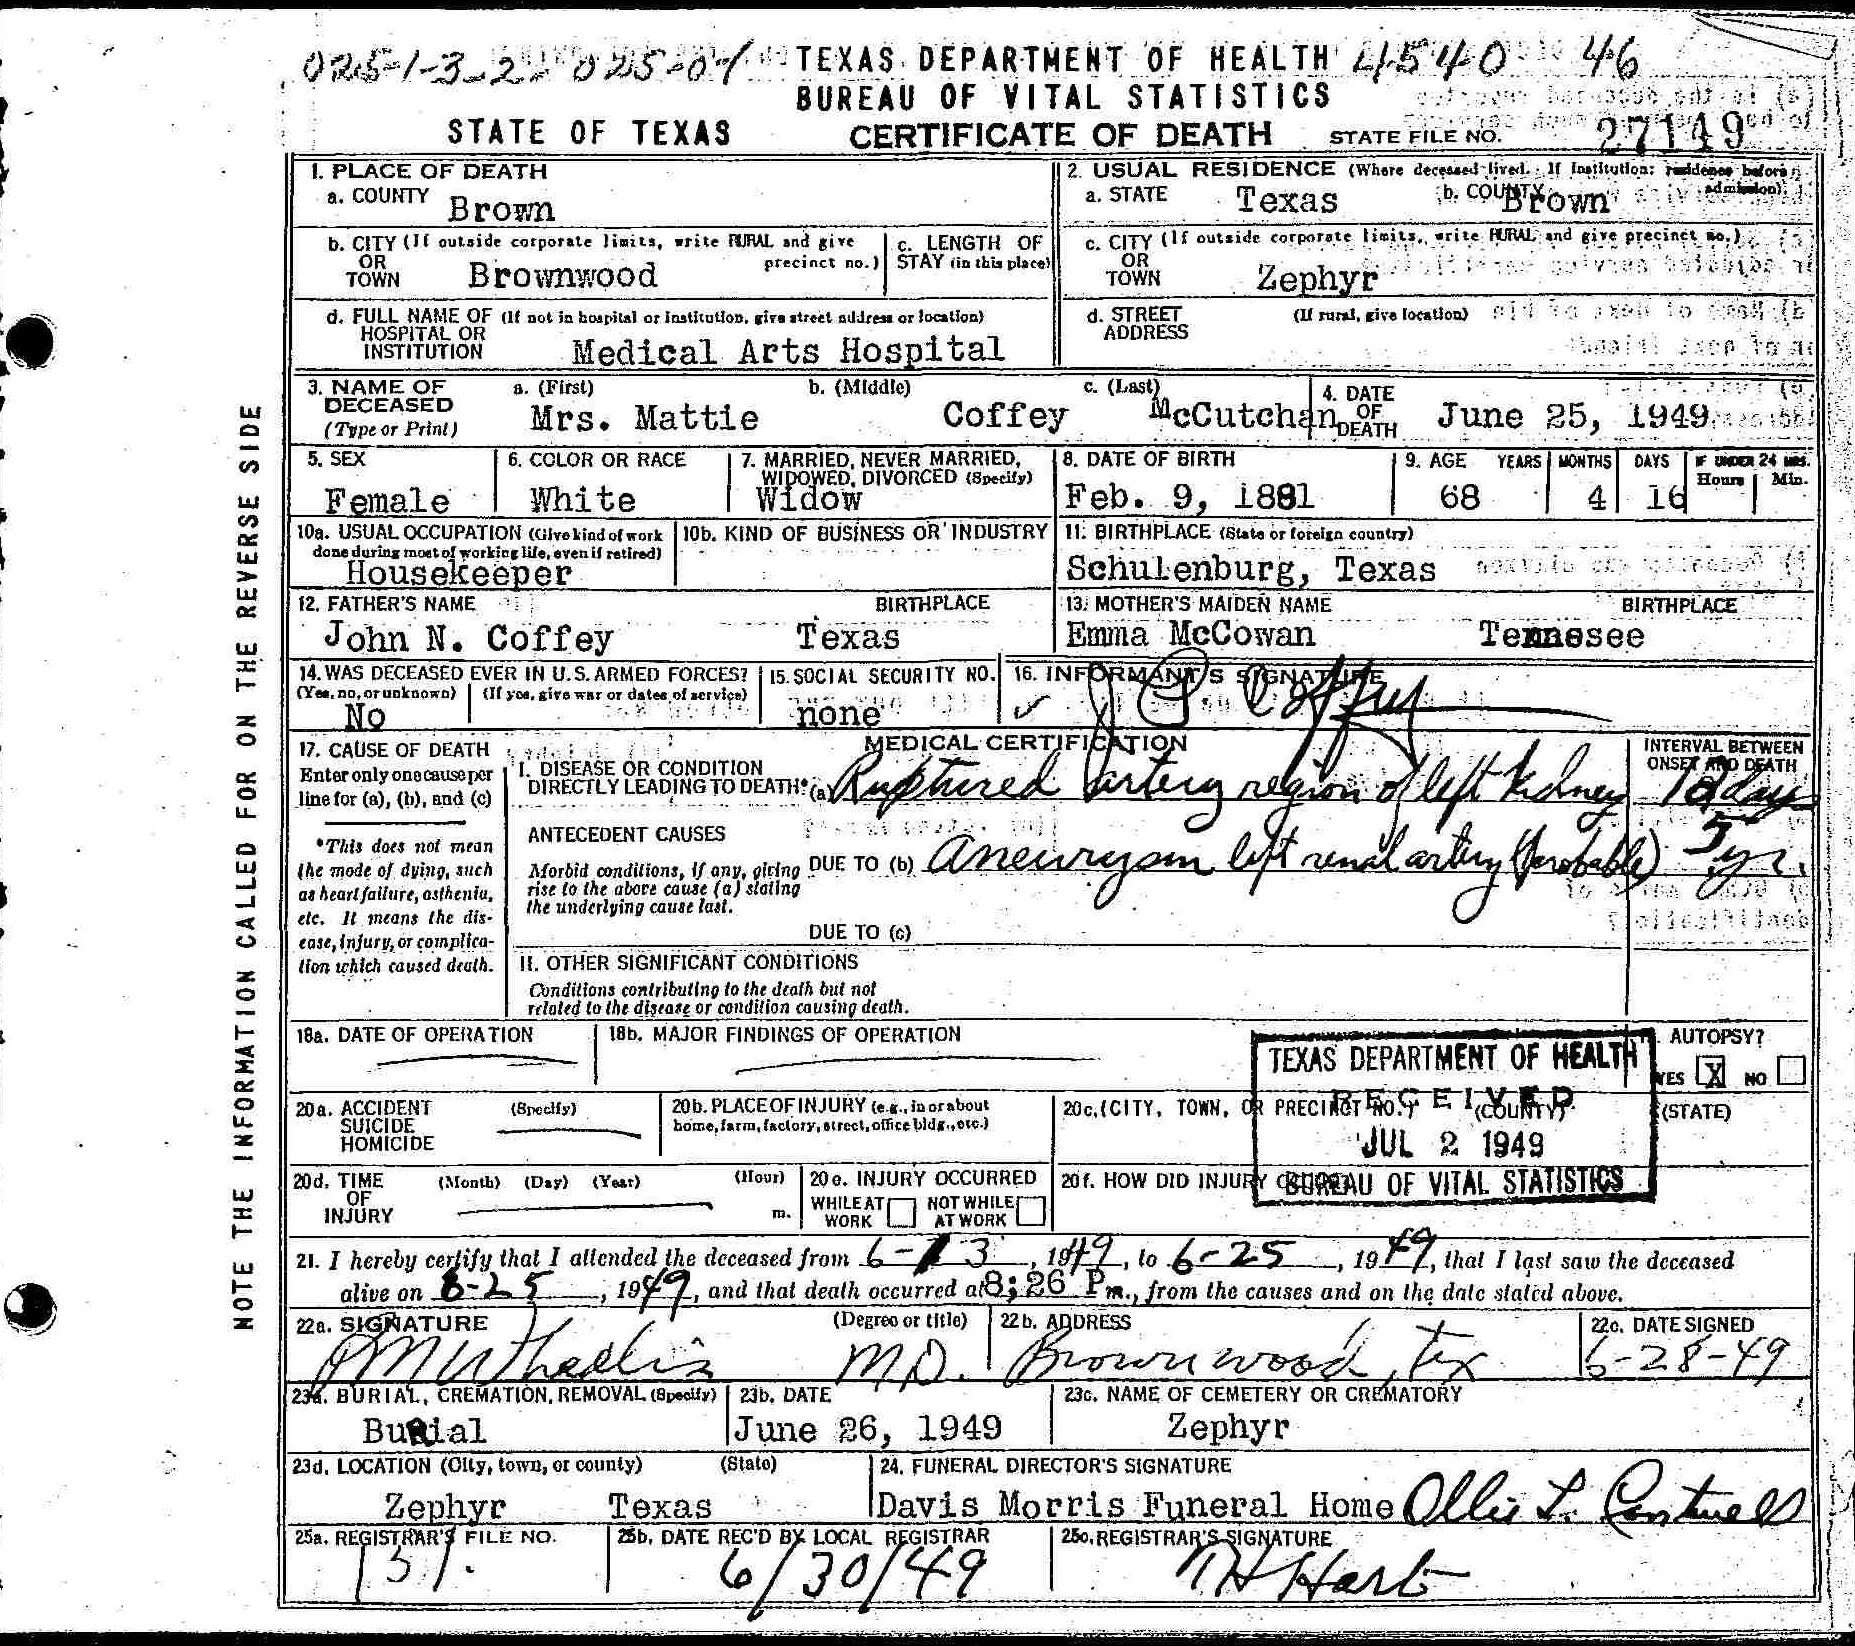 025-1-3-2-025-01 TEXAS DEPARTMENT OF HEALTH 4540 46
BUREAU OF VITAL STATISTICS
STATE OF TEXAS CERTIFICATE OF DEATH STATE FILE NO. 27149
NOTE THE INFORMATION CALLED FOR ON THE REVERSE SIDE
1. PLACE OF DEATH
a. COUNTY Brown
2. USUAL RESIDENCE (Where deceased lived. If institution: residence before admission)
a. STATE Texas b. COUNTY Brown
b. CITY (If outside corporate limits, write RURAL and give precinct no.)
OR TOWN Brownwood
c. LENGTH OF STAY (in this place)
c. CITY (If outside corporate limits, write RURAL and give precinct no.)
OR TOWN Zephyr
d. FULL NAME OF (If not in hospital or institution, give street address or location)
HOSPITAL OR INSTITUTION Medical Arts Hospital
d. STREET ADDRESS (If rural, give location)
3. NAME OF DECEASED (Type or Print) a. (First) b. (Middle) c. (Last)
Mrs. Mattie Coffey McCutchan
4. DATE OF DEATH June 25, 1949
5. SEX Female
6. COLOR OR RACE White
7. MARRIED, NEVER MARRIED, WIDOWED, DIVORCED (Specify) Widow
8. DATE OF BIRTH Feb. 9, 1881
9. AGE YEARS MONTHS DAYS IF UNDER 24 HRS. Hours Min.
68 4 16
10a. USUAL OCCUPATION (Give kind of work done during most of working life, even if retired)
Housekeeper
10b. KIND OF BUSINESS OR INDUSTRY
11. BIRTHPLACE (State or foreign country)
Schulenburg, Texas
12. FATHER'S NAME BIRTHPLACE
John N. Coffey Texas
13. MOTHER'S MAIDEN NAME BIRTHPLACE
Emma McCowan Tennesee
14. WAS DECEASED EVER IN U.S. ARMED FORCES?
(Yes, no, or unknown) (If yes, give war or dates of service)
No
15. SOCIAL SECURITY NO.
none
16. INFORMANT'S SIGNATURE
J G Coffey
17. CAUSE OF DEATH
Enter only one cause per line for (a), (b), and (c)
*This does not mean the mode of dying, such as heart failure, asthenia, etc. It means the disease, injury, or complication which caused death.
MEDICAL CERTIFICATION
INTERVAL BETWEEN ONSET AND DEATH
I. DISEASE OR CONDITION
DIRECTLY LEADING TO DEATH* (a) Ruptured artery region of left kidney 12 days
ANTECEDENT CAUSES
Morbid conditions, if any, giving rise to the above cause (a) stating the underlying cause last.
DUE TO (b) Aneurysm left renal artery (probable) 5 yr.
DUE TO (c)
II. OTHER SIGNIFICANT CONDITIONS
Conditions contributing to the death but not related to the disease or condition causing death.
18a. DATE OF OPERATION
18b. MAJOR FINDINGS OF OPERATION
AUTOPSY?
YES X NO
TEXAS DEPARTMENT OF HEALTH
RECEIVED
JUL 2 1949
BUREAU OF VITAL STATISTICS
20a. ACCIDENT SUICIDE HOMICIDE (Specify)
20b. PLACE OF INJURY (e.g., in or about home, farm, factory, street, office bldg., etc.)
20c. (CITY, TOWN, OR PRECINCT NO.) (COUNTY) (STATE)
20d. TIME OF INJURY (Month) (Day) (Year) (Hour) m.
20e. INJURY OCCURRED
WHILE AT WORK NOT WHILE AT WORK
20f. HOW DID INJURY OCCUR?
21. I hereby certify that I attended the deceased from 6-13, 1949, to 6-25, 1949, that I last saw the deceased
alive on 6-25, 1949, and that death occurred at 8:26 P m., from the causes and on the date stated above.
22a. SIGNATURE (Degree or title)
M.D.
22b. ADDRESS
Brownwood, Tex
22c. DATE SIGNED
6-28-49
23a. BURIAL, CREMATION, REMOVAL (Specify)
Burial
23b. DATE
June 26, 1949
23c. NAME OF CEMETERY OR CREMATORY
Zephyr
23d. LOCATION (City, town, or county) (State)
Zephyr Texas
24. FUNERAL DIRECTOR'S SIGNATURE
Davis Morris Funeral Home Ollie L. Cantwell
25a. REGISTRAR'S FILE NO.
131.
25b. DATE REC'D BY LOCAL REGISTRAR
6/30/49
25c. REGISTRAR'S SIGNATURE
T H Hart